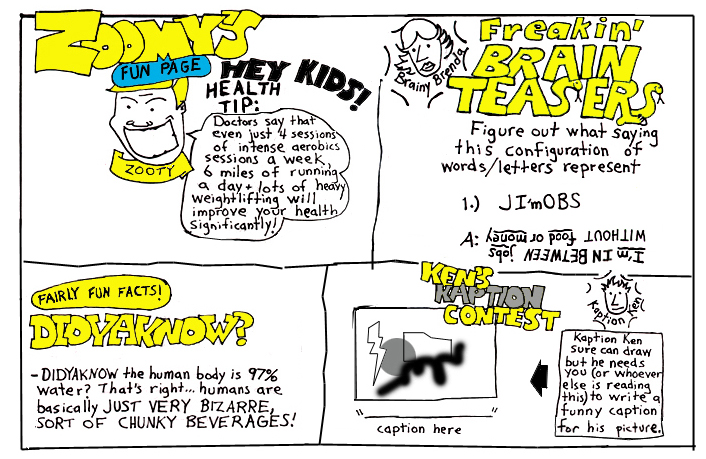 ZOOMY'S
FUN PAGE
HEY KIDS!
HEALTH
TIP:
Doctors say that
even just 4 sessions
of intense aerobics
sessions a week,
6 miles of running
a day + lots of heavy
weightlifting will
improve your health
significantly!
ZOOTY
Brainy Brenda
Freakin'
BRAIN
TEASERS
Figure out what saying
this configuration of
words/letters represent
1.) JI'mOBS
A:
I'm IN BETWEEN jobs
WITHOUT food or money
FAIRLY FUN FACTS!
DIDYAKNOW?
-DIDYAKNOW the human body is 97%
water? That's right... humans are
basically JUST VERY BIZARRE,
SORT OF CHUNKY BEVERAGES!
KEN'S
KAPTION
CONTEST
caption here
Kaption Ken
Kaption Ken
sure can draw
but he needs
you (or whoever
else is reading
this) to write a
funny caption
for his picture.